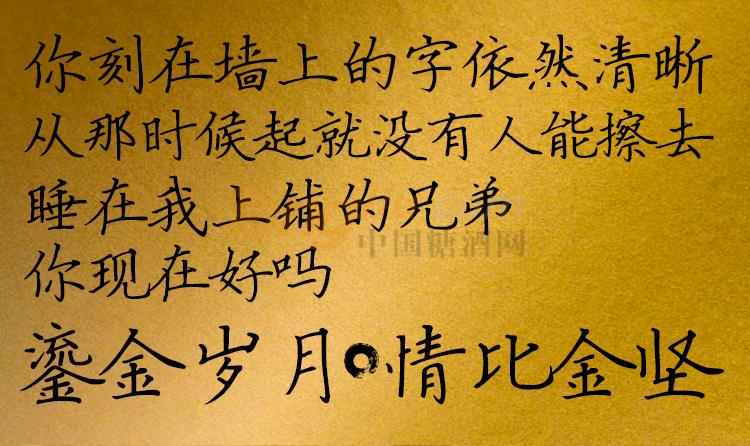 你刻在墙上的字依然清晰
从那时候起就没有人能擦去
睡在我上铺的兄弟
中国糖酒网
你现在好吗
鎏金岁月·情比金坚